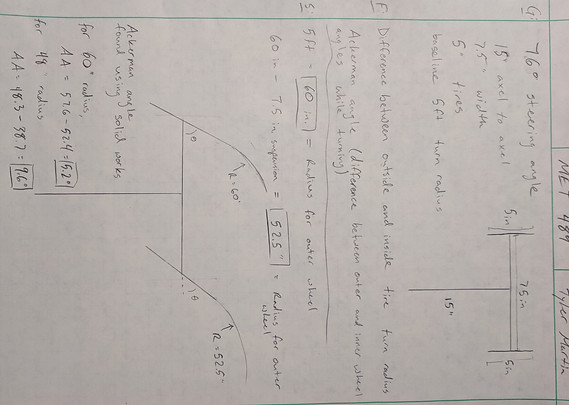 MET 489 Tyler Martin
G: 76° steering angle
15" axel to axel
7.5" width
5" tires
baseline 5ft turn radius
5in
7.5in
5in
15"
F: Difference between outside and inside tire turn radius
Ackerman angle (difference between outer and inner wheel
angles while turning)
S: 5ft = 60 in = Radius for outer wheel
60 in - 7.5 in suspension = 52.5" = Radius for outer
wheel
θ
R=60"
θ
R=52.5"
Ackerman angle
found using solid works
for 60" radius,
AA = 57.6-52.4 = 5.2°
for 48" radius
AA = 48.3-38.7 = 9.6°